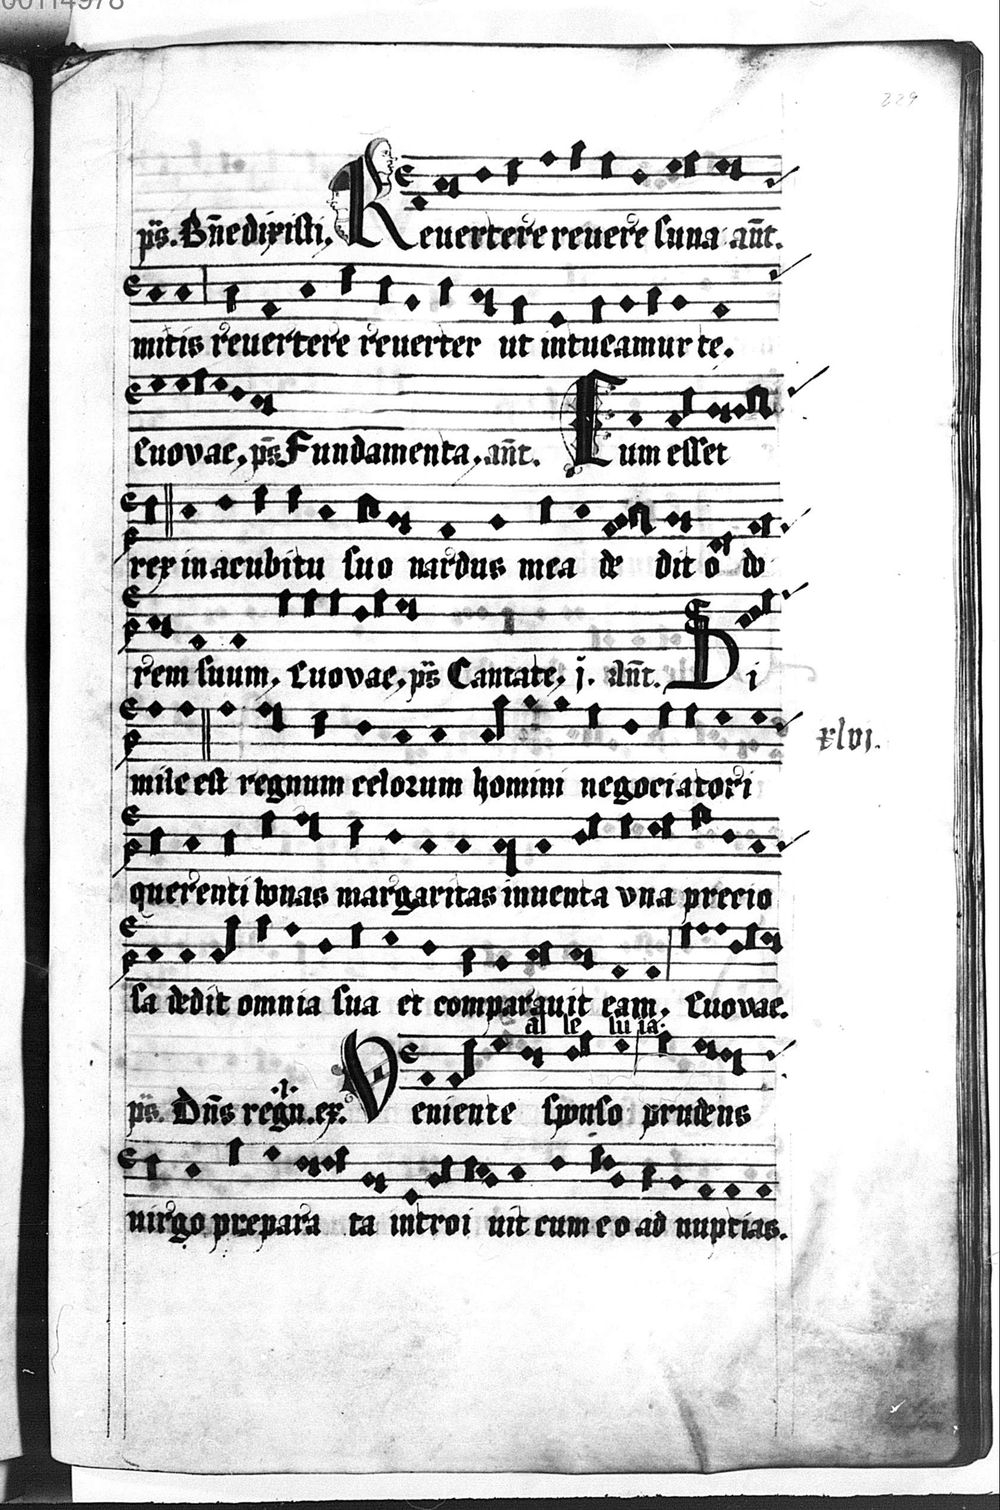 00114978
229
ps. Bn̄edixisti. Reuertere reuere suna an̄t.
mitis reuertere reuerter ut intueamur te.
Euovae, ps Fundamenta, an̄t. Cum esset
rex in acubitu suo nardus mea de dit o do
rem suum. Euovae, ps Cantate. j. An̄t. Si
xlvj.
mile est regnum celorum homini negociatori
querenti bonas margaritas inuenta vna precio
sa dedit omnia sua et comparauit eam. Euovae.
al le lu ia.
ps. Dn̄s regn. ex. .j. Veniente sponso prudens
uirgo prepara ta introi uit cum eo ad nuptias.